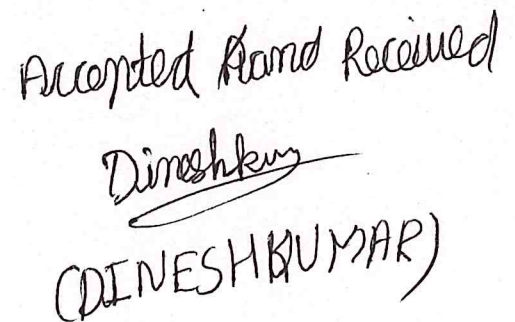 Accepted Hand Received
Dineshkum
(DINESHKUMAR)